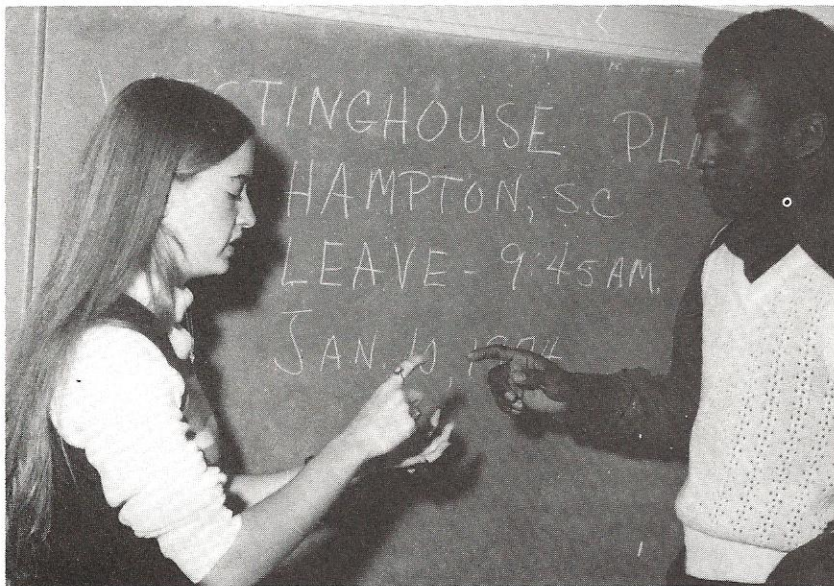 TINGHOUSE PLA
HAMPTON, S.C
LEAVE - 9:45 AM.
JAN. 10, 1974